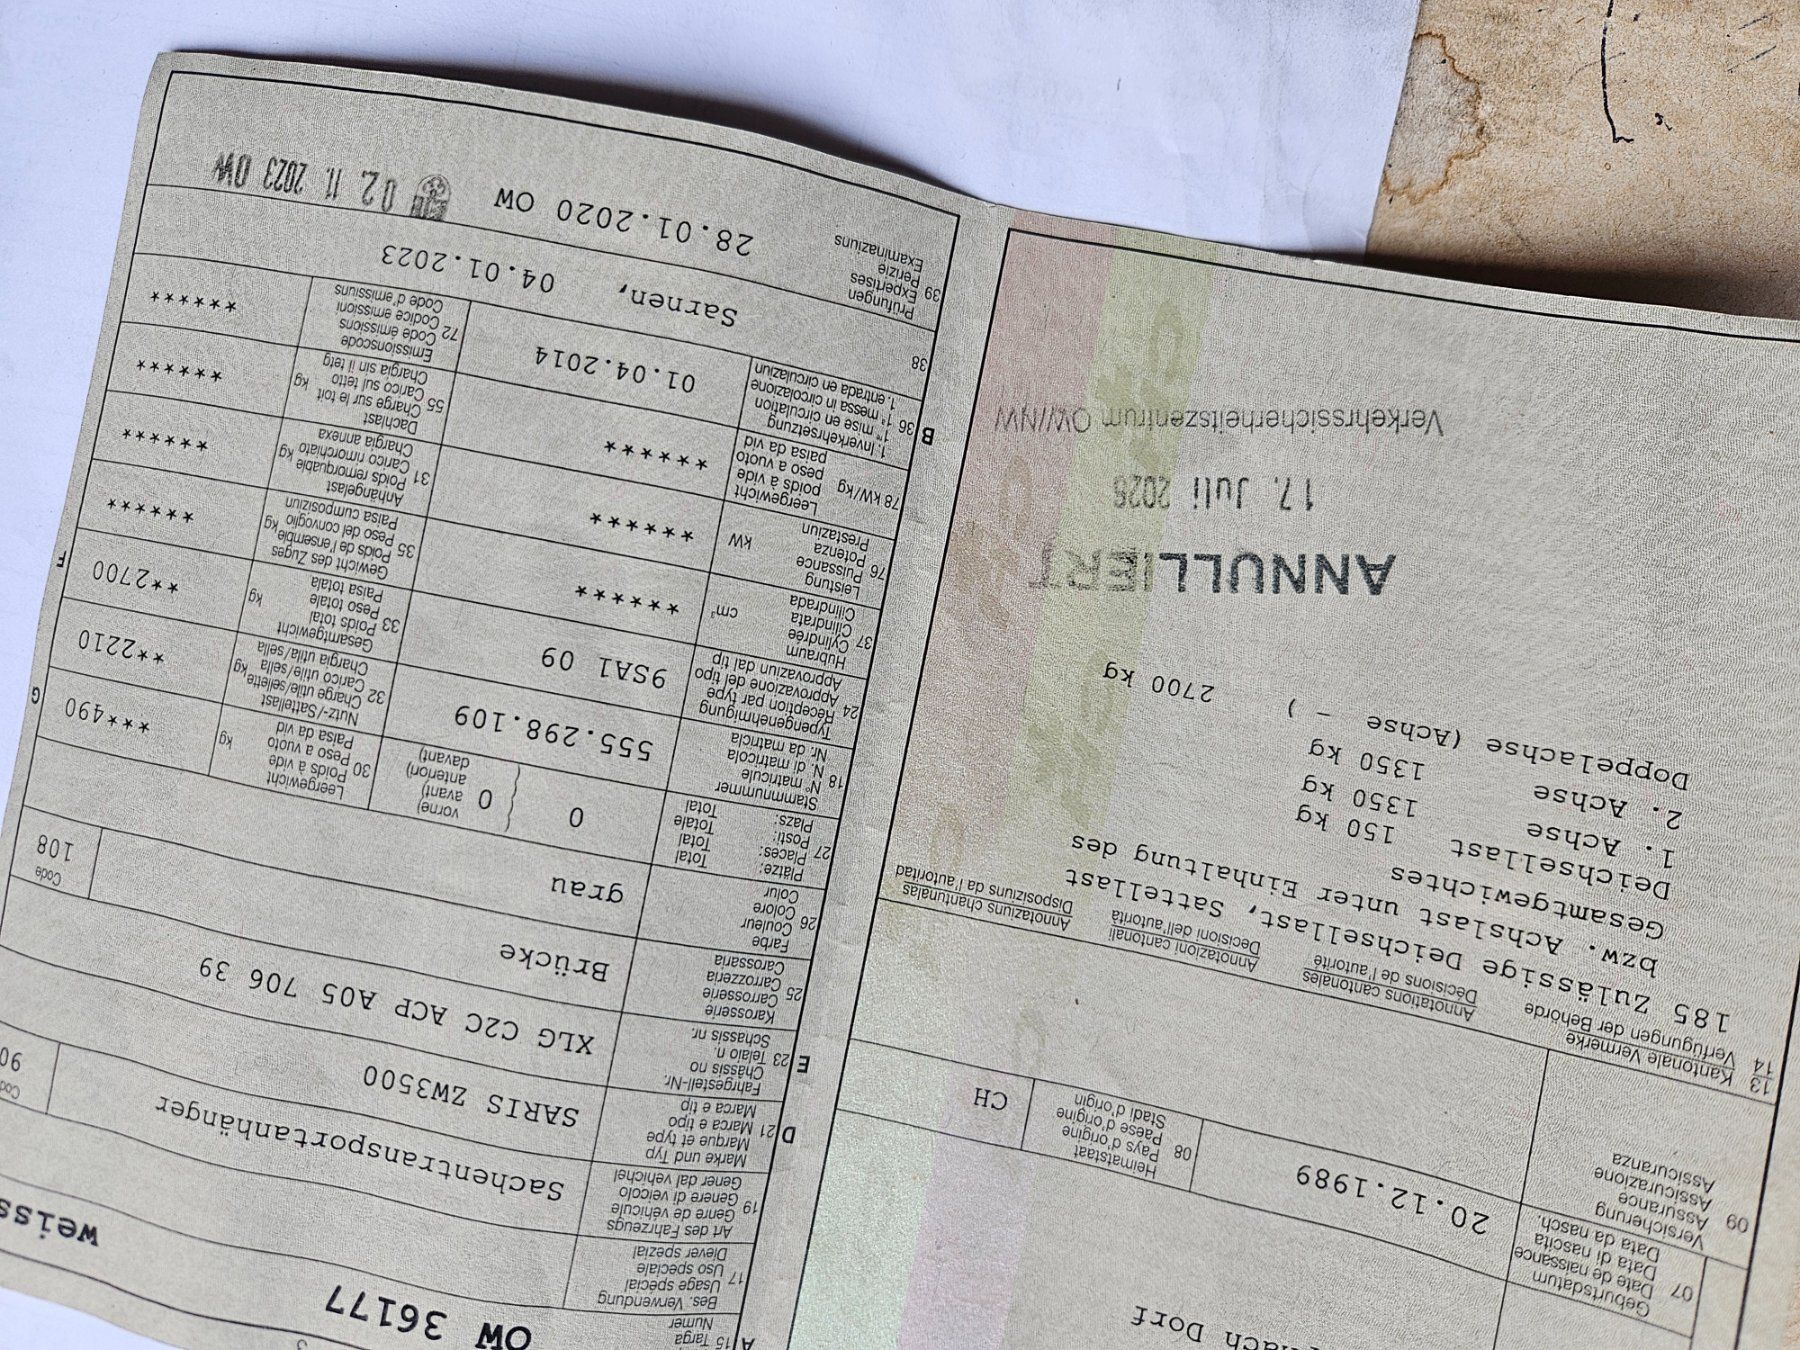 Dorf
07 Geburtsdatum
Date de naissance
Data di nascita
Data da nasch.
20.12.1989
08 Heimatstaat
Pays d'origine
Paese d'origine
Stadi d'origin
CH
09 Versicherung
Assurance
Assicurazione
Assicuranza
13 Kantonale Vermerke
14 Verfügungen der Behörde
Annotations cantonales
Décisions de l'autorité
Annotazioni cantonali
Decisioni dell'autorità
Annotaziuns chantunalas
Disposiziuns da l'autoritad
185 Zulässige Deichsellast, Sattellast
bzw. Achslast unter Einhaltung des
Gesamtgewichtes
Deichsellast 150 kg
1. Achse 1350 kg
2. Achse 1350 kg
Doppelachse (Achse - ) 2700 kg
ANNULLIERT
17. Juli 2026
Verkehrssicherheitszentrum OW/NW
A
15 Targa
Numer
OW 36177
weiss
17 Bes. Verwendung
Usage spécial
Uso speciale
Diever spezial
19 Art des Fahrzeugs
Genre de véhicule
Genere di veicolo
Gener dal vehichel
Sachentransportanhänger
Code
90
D
21 Marke und Typ
Marque et type
Marca e tipo
Marca e tip
SARIS ZW3500
E
23 Fahrgestell-Nr.
Châssis no
Telaio n.
Schassis nr.
XLG C2C ACP A05 706 39
25 Karosserie
Carrosserie
Carrozzeria
Carossaria
Brücke
Code
108
26 Farbe
Couleur
Colore
Colur
grau
27 Plätze: Total
Places: Total
Posti: Totale
Plazs: Total
0
0
vorne)
avant)
anteriori)
davant)
G
30 Leergewicht
Poids à vide
Peso a vuoto
Paisa da vid
kg
***490
18 Stammnummer
N° matricule
N. di matricola
Nr. da matricla
555.298.109
32 Nutz-/Sattellast
Charge utile/sellette
Carico utile/sella
Chargia utila/sella
kg
**2210
24 Typengenehmigung
Réception par type
Approvazione del tipo
Approvaziun dal tip
9SA1 09
F
33 Gesamtgewicht
Poids total
Peso totale
Paisa totala
kg
**2700
37 Hubraum
Cylindrée
Cilindrata
Cilindrada
cm³
******
35 Gewicht des Zuges
Poids de l'ensemble
Peso del convoglio
Paisa cumposiziun
kg
******
76 Leistung
Puissance
Potenza
Prestaziun
kW
******
31 Anhängelast
Poids remorquable
Carico rimorchiato
Chargia annexa
kg
******
78 kW/kg
Leergewicht
poids à vide
peso a vuoto
paisa da vid
******
55 Dachlast
Charge sur le toit
Carico sul tetto
Chargia sin il tetg
kg
******
B
36 1. Inverkehrsetzung
1re mise en circulation
1. messa in circolazione
1. entrada en circulaziun
01.04.2014
72 Emissionscode
Code émissions
Codice emissioni
Code d'emissiuns
******
38
Sarnen, 04.01.2023
39 Prüfungen
Expertises
Perizie
Examinaziuns
28.01.2020 OW
02. 11. 2023 OW